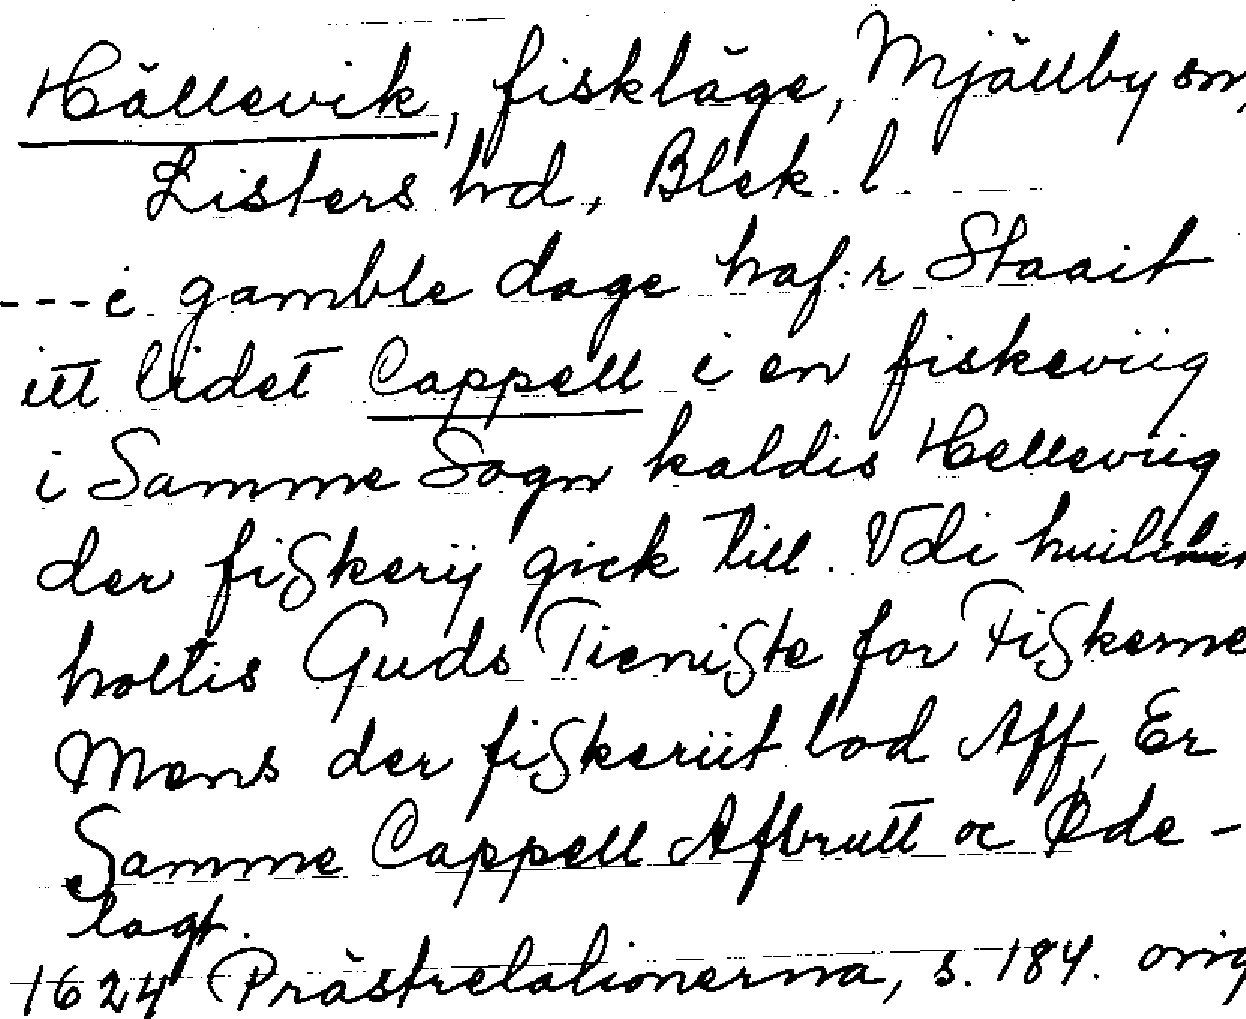 Hällevik, fiskläge, Mjällby sn,
Listers hd, Blek. l.
---i gamble dage haf:r Staait
itt lidet Cappell i en fiskeviig
i Samme Sogn kaldis Helleviig
der fiskerij gick till. Vdi huilchen
holtis Guds Tieniste for Fiskerne
Mens der fiskeriit lod Aff, Er
Samme Cappell Afbrutt oc Øde-
lagt.
1624 Prästrelationerna, s. 184. orig